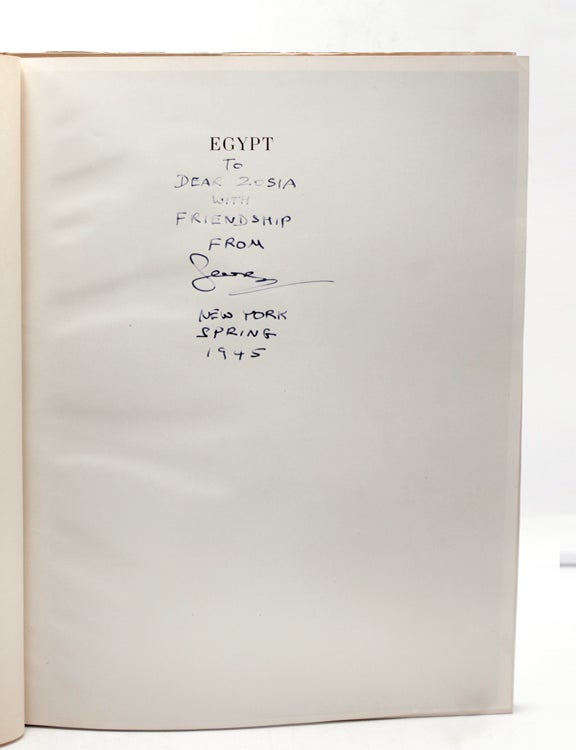 EGYPT
TO
DEAR ZOSIA
WITH
FRIENDSHIP
FROM
George
NEW YORK
SPRING
1945